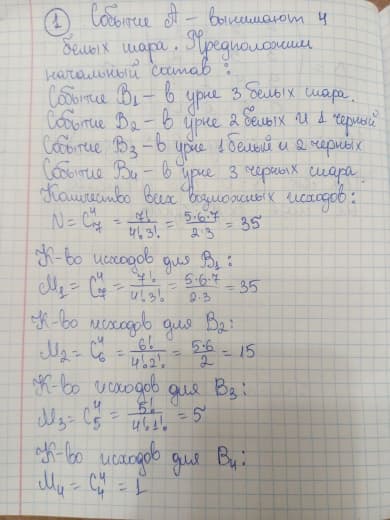 1 Событие А - вынимают 4
белых шара. Предположим
начальный состав:
Событие B₁ - в урне 3 белых шара.
Событие B₂ - в урне 2 белых и 1 черный
Событие B₃ - в урне 1 белый и 2 черных
Событие B₄ - в урне 3 черных шара.
Количество всех возможных исходов:
N = C₇⁴ = 7!/4!3! = 5·6·7/2·3 = 35
К-во исходов для B₁:
M₁ = C₇⁴ = 7!/4!3! = 5·6·7/2·3 = 35
К-во исходов для B₂:
M₂ = C₆⁴ = 6!/4!2! = 5·6/2 = 15
К-во исходов для B₃:
M₃ = C₅⁴ = 5!/4!1! = 5
К-во исходов для B₄:
M₄ = C₄⁴ = 1